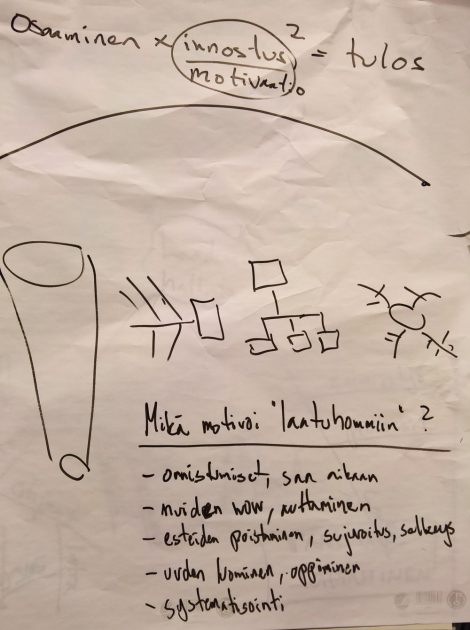 Osaaminen x (innostus / motivaatio)² = tulos
Mikä motivoi "laatuhommiin"?
- onnistumiset, saa aikaan
- muiden wow, auttaminen
- esteiden poistaminen, sujuvoitus, selkeys
- uuden luominen, oppiminen
- systematisointi